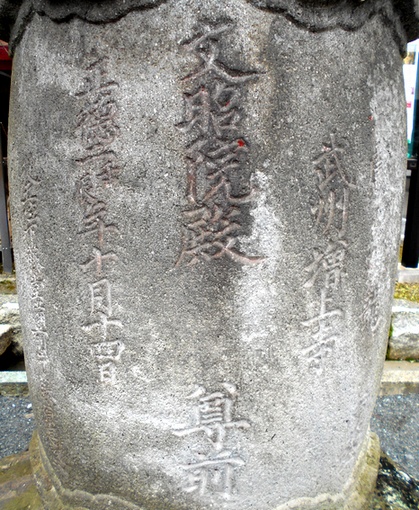 武州増上寺
文昭院殿 尊前
正徳二壬辰年十月十四日